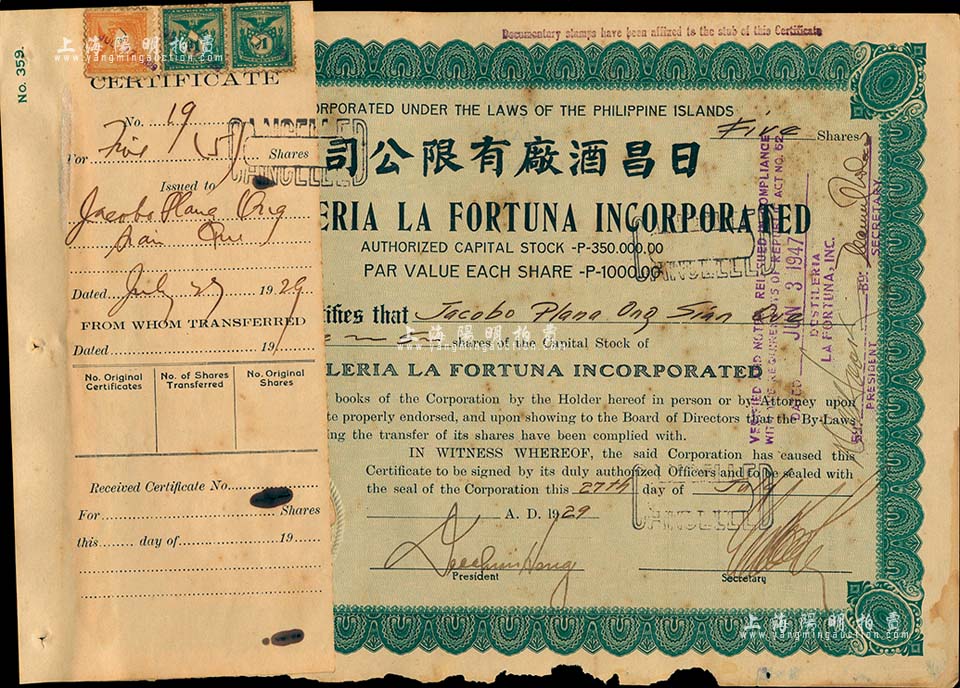 No. 359.
CERTIFICATE
No. 19
For Five (5) Shares
Issued to
Jacobo Plana Ong
Sian Que
Dated July 27 1929
FROM WHOM TRANSFERRED
Dated 19
No. Original Certificates
No. of Shares Transferred
No. Original Shares
Received Certificate No.
For Shares
this day of 19
Documentary stamps have been affixed to the stub of this Certificate
ORPORATED UNDER THE LAWS OF THE PHILIPPINE ISLANDS
Five Shares
司公限有廠酒昌日
LERIA LA FORTUNA INCORPORATED
AUTHORIZED CAPITAL STOCK -P-350.000.00
PAR VALUE EACH SHARE -P-1000.00
tifies that Jacobo Plana Ong Sian Que
shares of the Capital Stock of
LERIA LA FORTUNA INCORPORATED
books of the Corporation by the Holder hereof in person or by Attorney upon
te properly endorsed, and upon showing to the Board of Directors that the By-Laws
ing the transfer of its shares have been complied with.
IN WITNESS WHEREOF, the said Corporation has caused this
Certificate to be signed by its duly authorized Officers and to be sealed with
the seal of the Corporation this 27th day of July
A. D. 1929
President
Secretary
CANCELLED
CANCELLED
CANCELLED
CANCELLED
VERIFIED NOTE REISSUED IN COMPLIANCE
WITH THE REQUIREMENTS OF REPUBLIC ACT NO. 62
DATED JUN 3 1947
DESTILERIA
LA FORTUNA, INC.
BY:
PRESIDENT
BY:
SECRETARY
上海陽明拍賣
www.yangmingauction.com
上海陽明拍賣
www.yangmingauction.com
上海陽明拍賣
www.yangmingauction.com